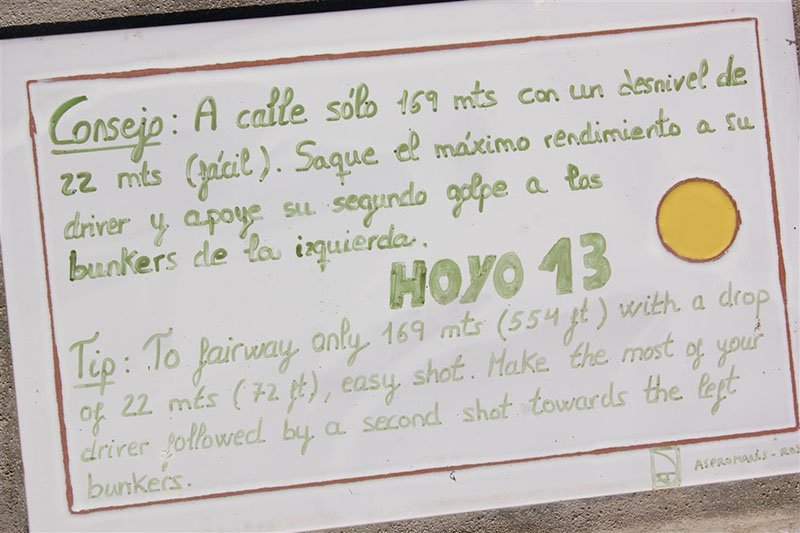 Consejo: A calle sólo 169 mts con un desnivel de
22 mts (fácil). Saque el máximo rendimiento a su
driver y apoye su segundo golpe a los
bunkers de la izquierda.
HOYO 13
Tip: To fairway only 169 mts (554 ft) with a drop
of 22 mts (72 ft), easy shot. Make the most of your
driver followed by a second shot towards the left
bunkers.
ASPROMANIS -